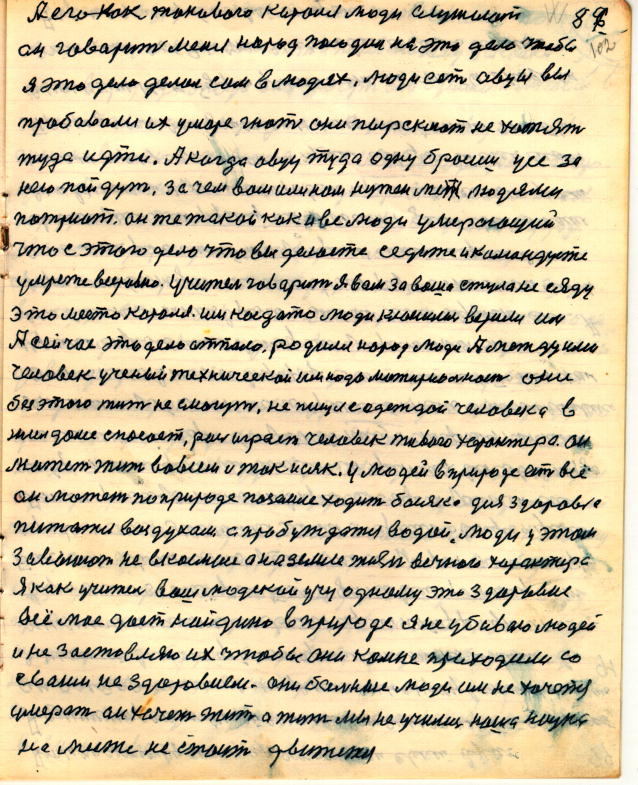 А его как такового короля люди слушают 8
102
он говарит меня народ посодил на это дело чтобы
я это дело делал сам в людях, люди сеть овцы вы
пробавали их у море гнать они пырскают не хотять
туда идти. А когда овцу туда одну бросиш усе за
нею пойдут, зачем вам или нам нужен меж людями
патриот. он же такой как и все люди умерающий
что с этого дело что вы делаете седите и командуете
умрете всеровно. Учител говарит я вам за ваша стула не сяду
это место короля. им когдато люди кланялис верили им
А сейчас это дело отпало, родился народ люди А между ими
человек ученый технической им нада материальност они
без этого жит не смогут, не пища с одеждой человека в
жилдоме спосает, рол играет человек живого характера. он
может жит во всем и так и сяк. У людей в природе ест всё
он может по природе по земле ходит босяко для здоровья
питатся воздухам а пробуждатся водой. Люди у этом
завоюют не в космосе а на земле жизн вечного характера
Я как учител ваш людской учу одному это здоровие
всё мое дает найдино в природе я не убиваю людей
и не заставляю их чтобы они комне приходили со
своим не здоровием. они больные люди им не хочется
умерат он хочет жит а жит мы не училис наша наука
на месте не стоит движется